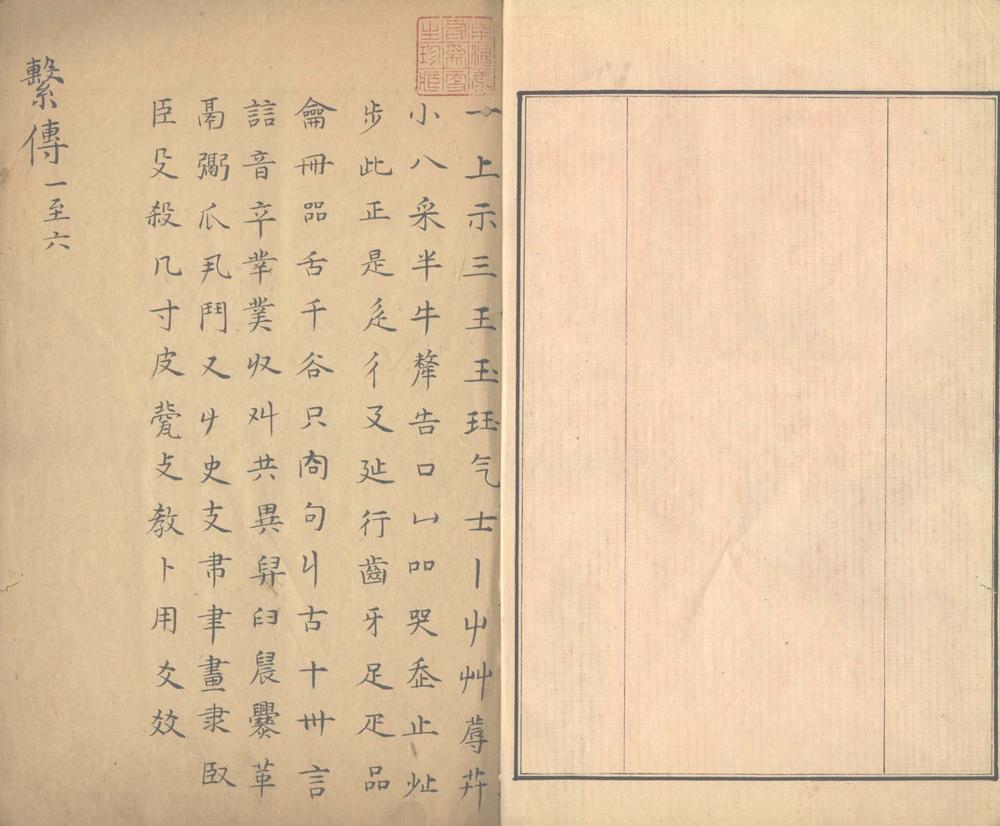 南海康有為更生珍藏
一上示三王玉玨气士丨屮艸蓐茻
小八釆半牛犛告口凵吅哭走止癶
步此正是辵彳廴㢟行齒牙足疋品
龠冊㗊舌干谷只㕯句丩古十卅言
誩音䇂丵菐収𠬜共異舁臼晨爨革
鬲䰜爪丮鬥又𠂇史支𦘒聿畫隶臤
臣殳殺𠘧寸皮㼱攴教卜用爻㸚
繫傳一至六